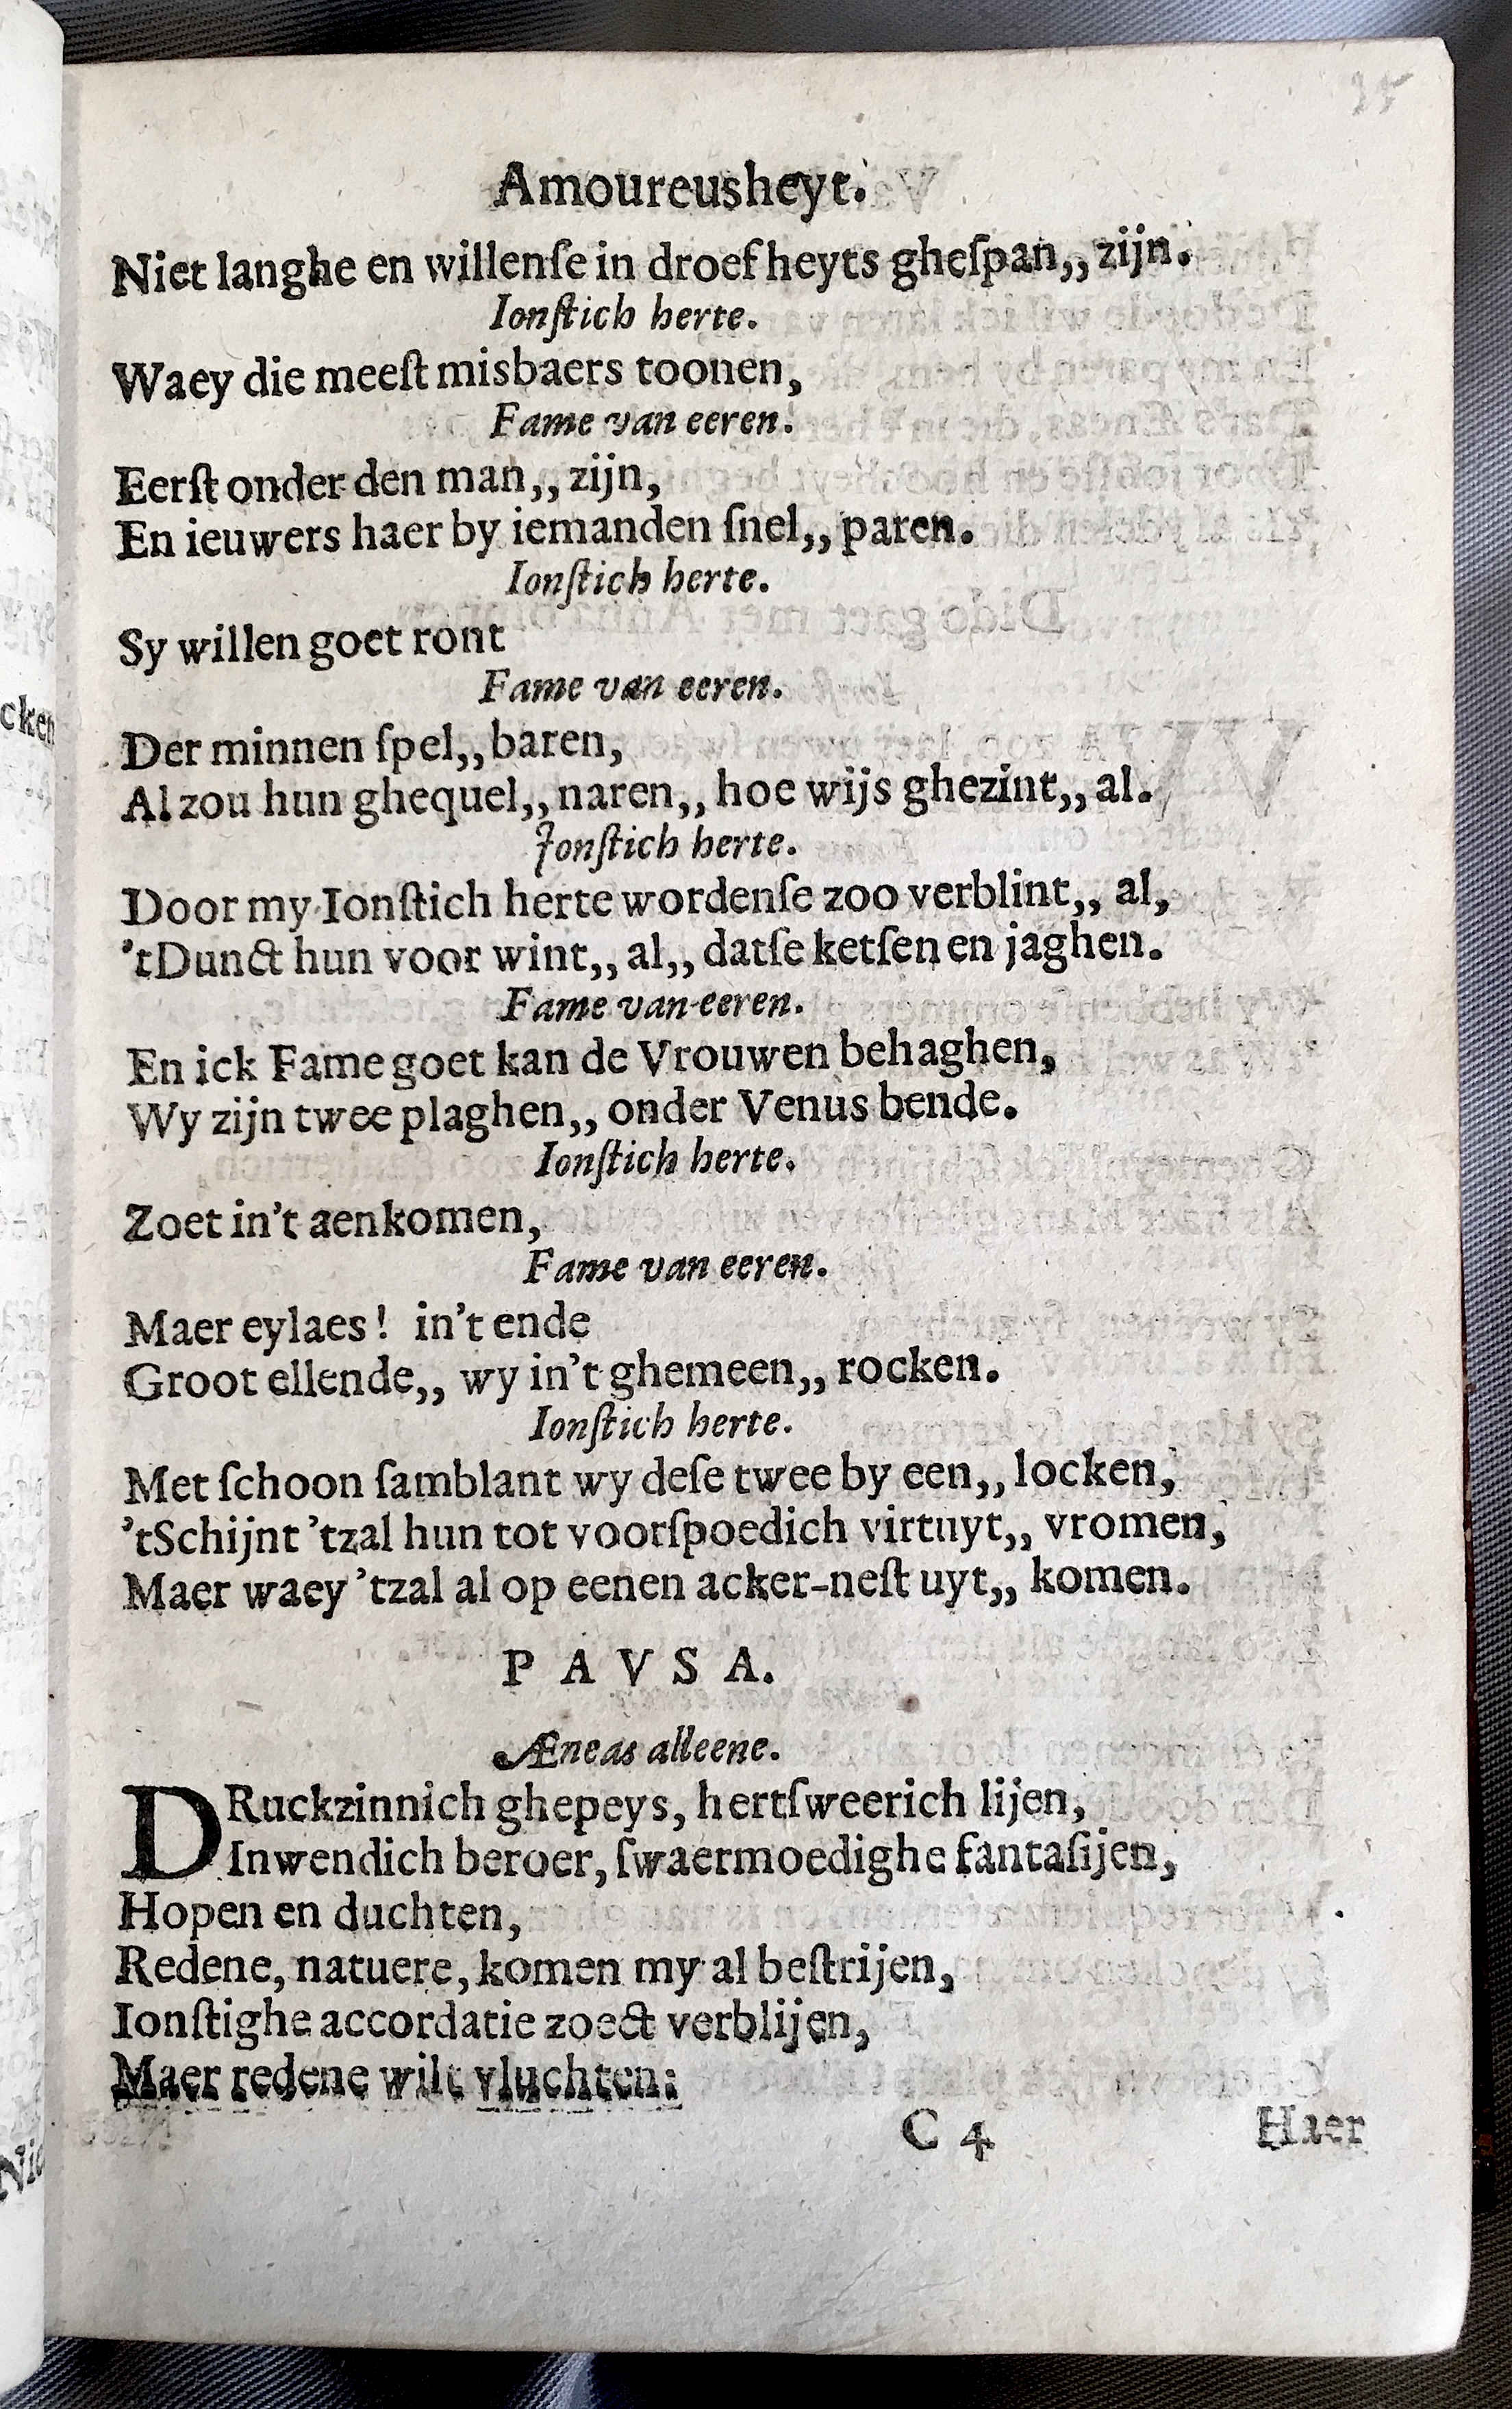 Amoureusheyt.
Niet langhe en willenſe in droefheyts gheſpan,, zijn.
Ionſtich herte.
Waey die meeſt misbaers toonen,
Fame van eeren.
Eerſt onder den man,, zijn,
En ieuwers haer by iemanden ſnel,, paren.
Ionſtich herte.
Sy willen goet ront
Fame van eeren.
Der minnen ſpel,, baren,
Al zou hun ghequel,, naren,, hoe wijs ghezint,, al.
Jonſtich herte.
Door my Ionſtich herte wordenſe zoo verblint,, al,
'tDunct hun voor wint,, al,, datſe ketſen en jaghen.
Fame van eeren.
En ick Fame goet kan de Vrouwen behaghen,
Wy zijn twee plaghen,, onder Venus bende.
Ionſtich herte.
Zoet in't aenkomen,
Fame van eeren.
Maer eylaes! in't ende
Groot ellende,, wy in't ghemeen,, rocken.
Ionſtich herte.
Met ſchoon ſamblant wy deſe twee by een,, locken,
'tSchijnt 'tzal hun tot voorſpoedich virtuyt,, vromen,
Maer waey 'tzal al op eenen acker-neſt uyt,, komen.
PAVSA.
Æneas alleene.
DRuckzinnich ghepeys, hertſweerich lijen,
Inwendich beroer, ſwaermoedighe fantaſijen,
Hopen en duchten,
Redene, natuere, komen my al beſtrijen,
Ionſtighe accordatie zoect verblijen,
Maer redene wilt vluchten:
C 4 Haer